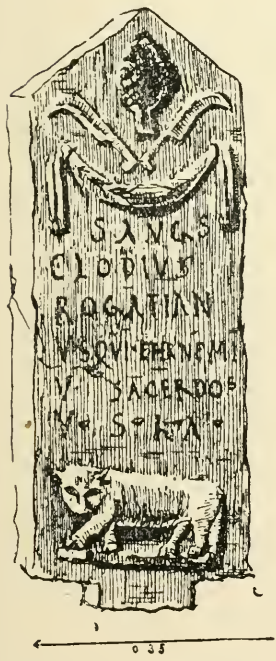 S AVG S
CLODIVS
ROGATIAN
VSQVI·EHRNEMI
V· SACERDOS
V·S·L·A·
0 35